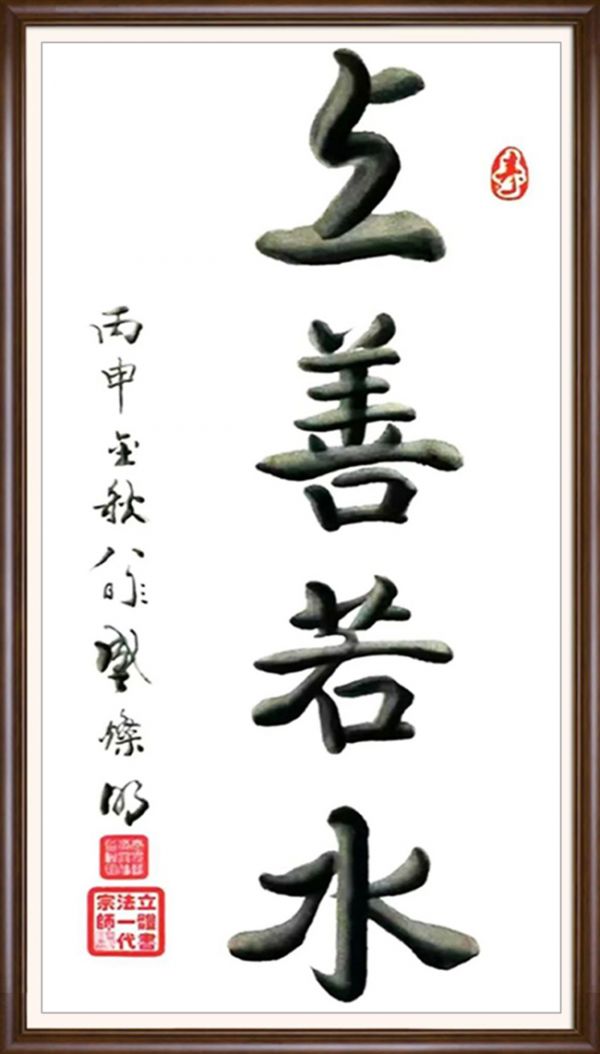 上善若水
丙申金秋八 盛燦明
立體書
法一代
宗師